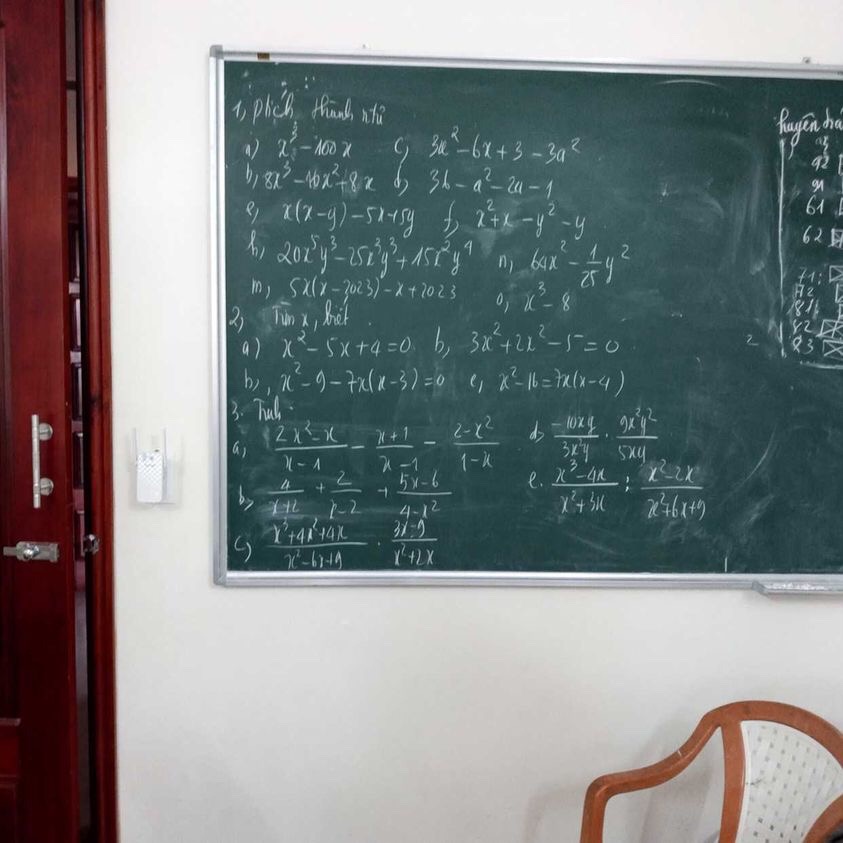 1, phtích thành ntử
a) x³ - 100x c, 3x² - 6x + 3 - 3a²
b, 8x³ - 16x² + 8x d, 36 - a² - 2a - 1
e, x(x-y) - 5x + 5y f, x² + x - y² - y
h, 20x⁵y³ - 25x²y³ + 15x²y⁴ n, 64x² - 1/25 y²
m, 5x(x - 2023) - x + 2023 o, x³ - 8
2, Tìm x, biết.
a) x² - 5x + 4 = 0 b, 3x² + 2x² - 5 = 0
b, x² - 9 - 7x(x-3) = 0 e, x² - 16 = 7x(x-4)
3. Tính.
a, (2x² - x)/(x - 1) - (x + 1)/(x - 1) - (2 - x²)/(1 - x) d, (-10xy)/(3x²y) · (9x²y²)/(5xy)
b, 4/(x+2) + 2/(x-2) + (5x - 6)/(4 - x²) e. (x³ - 4x)/(x² + 3x) : (x² - 2x)/(x² + 6x + 9)
c) (x³ + 4x² + 4x)/(x² - 6x + 9) · (3x - 9)/(x² + 2x)
huyện
92
91
61
62
71:
72
81
82
83
2